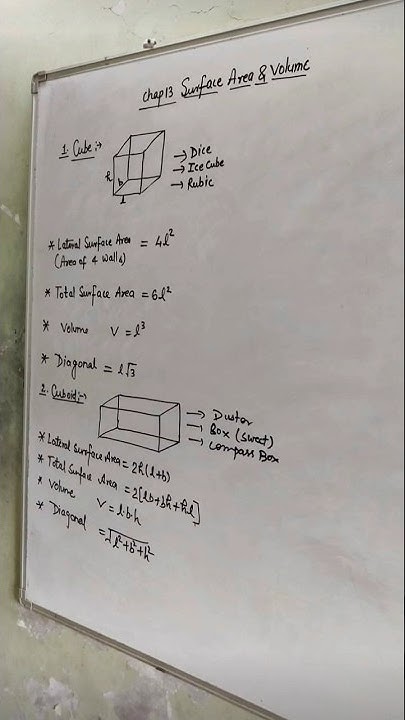 Chap 13 Surface Area & Volume
1. Cube:-
h b l
→ Dice
→ Ice Cube
→ Rubic
* Lateral Surface Area = 4l²
(Area of 4 walls)
* Total Surface Area = 6l²
* Volume V = l³
* Diagonal = l√3
2. Cuboid:-
→ Duster
→ Box (sweet)
→ Compass Box
* Lateral Surface Area = 2h(l+b)
* Total Surface Area = 2[lb+bh+hl]
* Volume V = l·b·h
* Diagonal = √l²+b²+h²